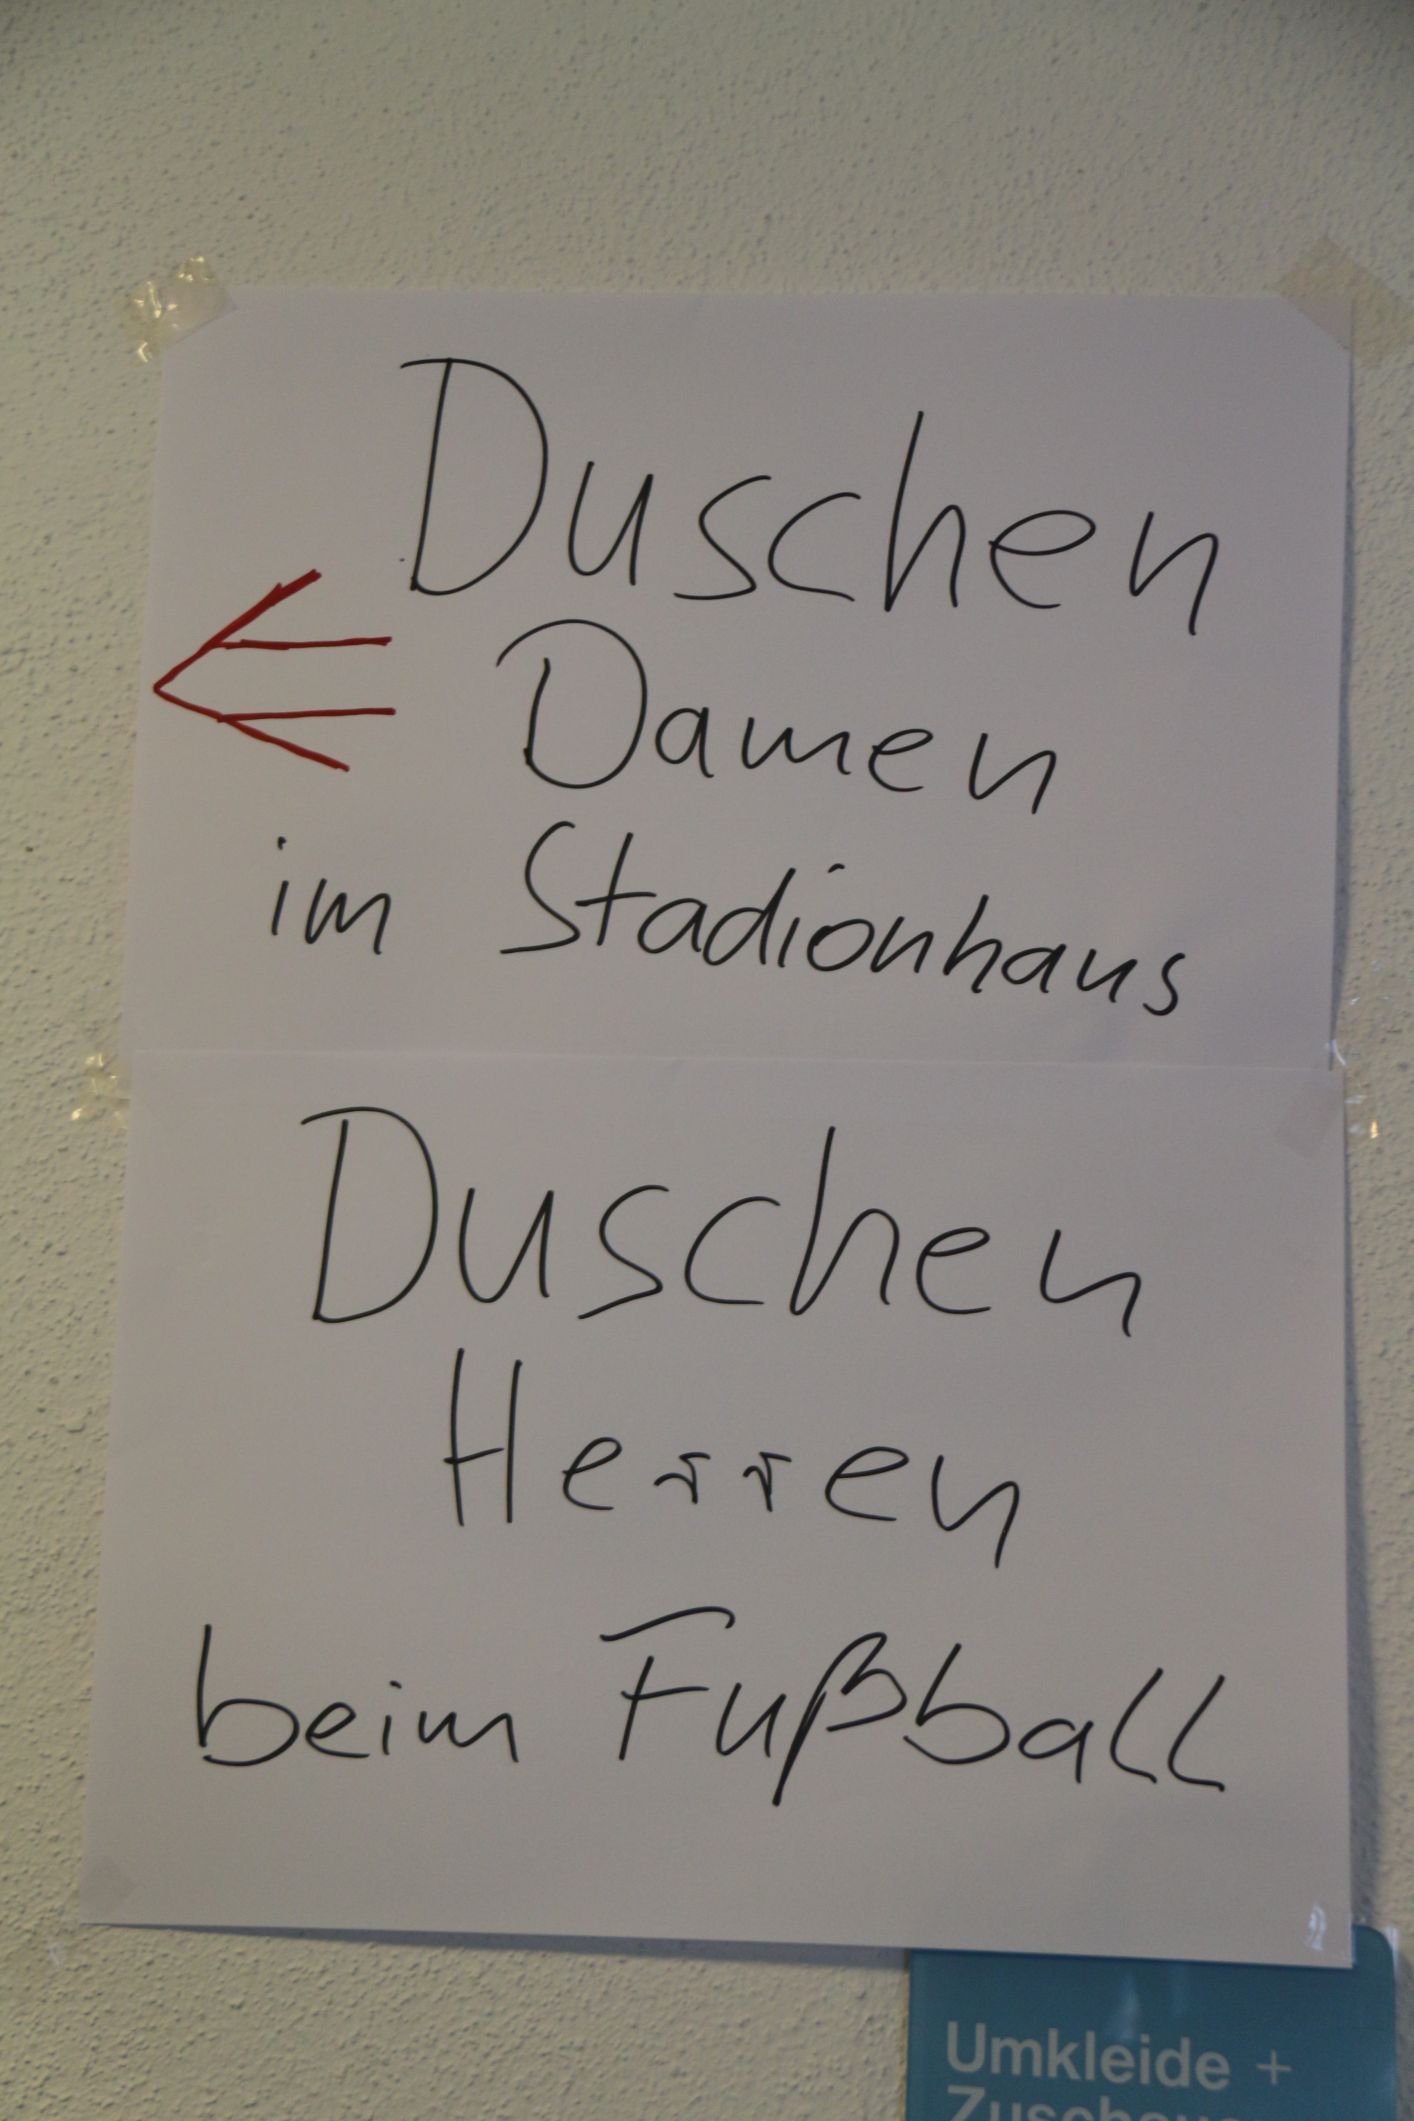 Duschen
Damen
im Stadionhaus
Duschen
Herren
beim Fußball
Umkleide +